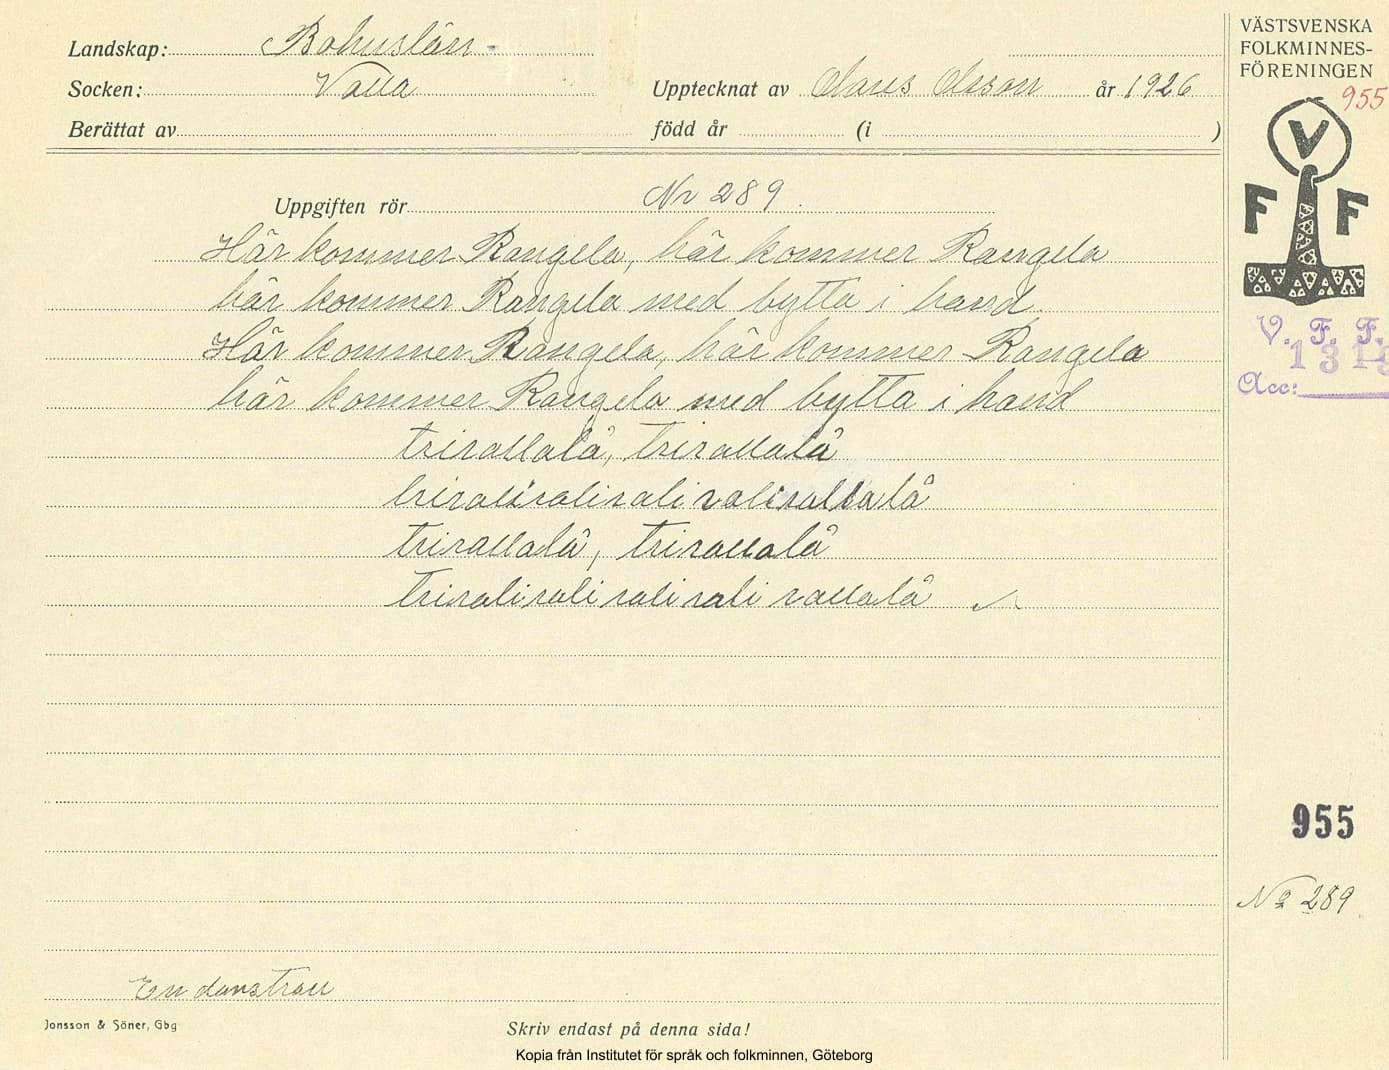 Landskap: Bohuslän
Socken: Valla
Upptecknat av Claus Olsson år 1926
Berättat av
född år (i )
VÄSTSVENSKA
FOLKMINNES-
FÖRENINGEN
955
V
F F
V. F. F.
131
Acc:
Uppgiften rör Nr 289.
Här kommer Rangela, här kommer Rangela
här kommer Rangela med bytta i hand.
Här kommer Rangela, här kommer Rangela
här kommer Rangela med bytta i hand
trirallalå, trirallalå
triraliraliraliraliralla lå
trirallalå, trirallalå
triralirali rali rali rallalå
955
No 289
En danstrall
Jonsson & Söner, Gbg
Skriv endast på denna sida!
Kopia från Institutet för språk och folkminnen, Göteborg